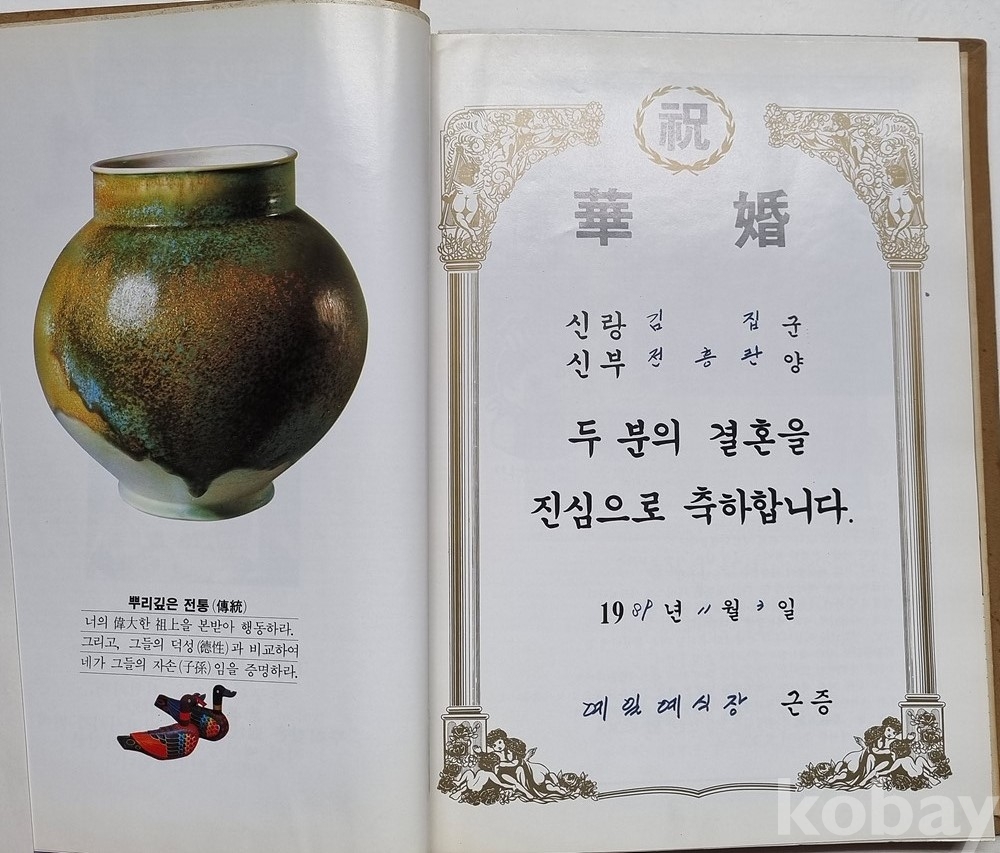 뿌리깊은 전통(傳統)
너의 偉大한 祖上을 본받아 행동하라.
그리고, 그들의 덕성(德性)과 비교하여
네가 그들의 자손(子孫)임을 증명하라.
祝
華 婚
신랑 김 집 군
신부 전 흥 란 양
두 분의 결혼을
진심으로 축하합니다.
1989년 11월 3일
예일예식장 근증
kobay